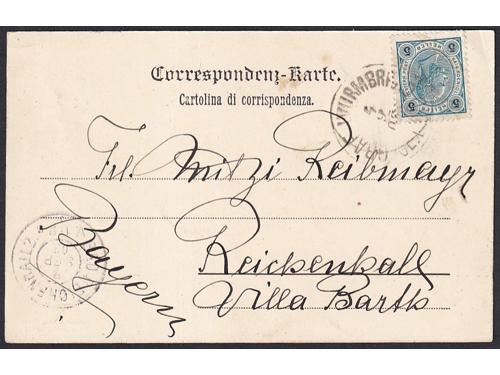 Correspondenz-Karte.
Cartolina di corrispondenza.
Frl. Mitzi Reibmayr
Reichenhall
Villa Barth
Bayern
5 HELLER 5